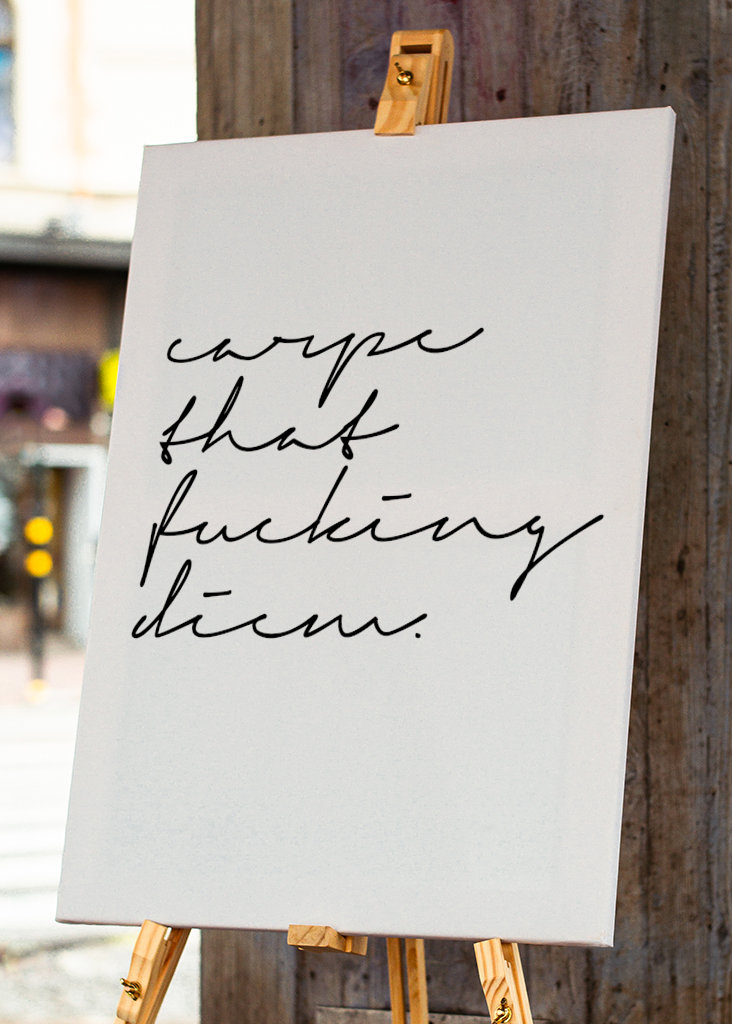 carpe
that
fucking
diem.